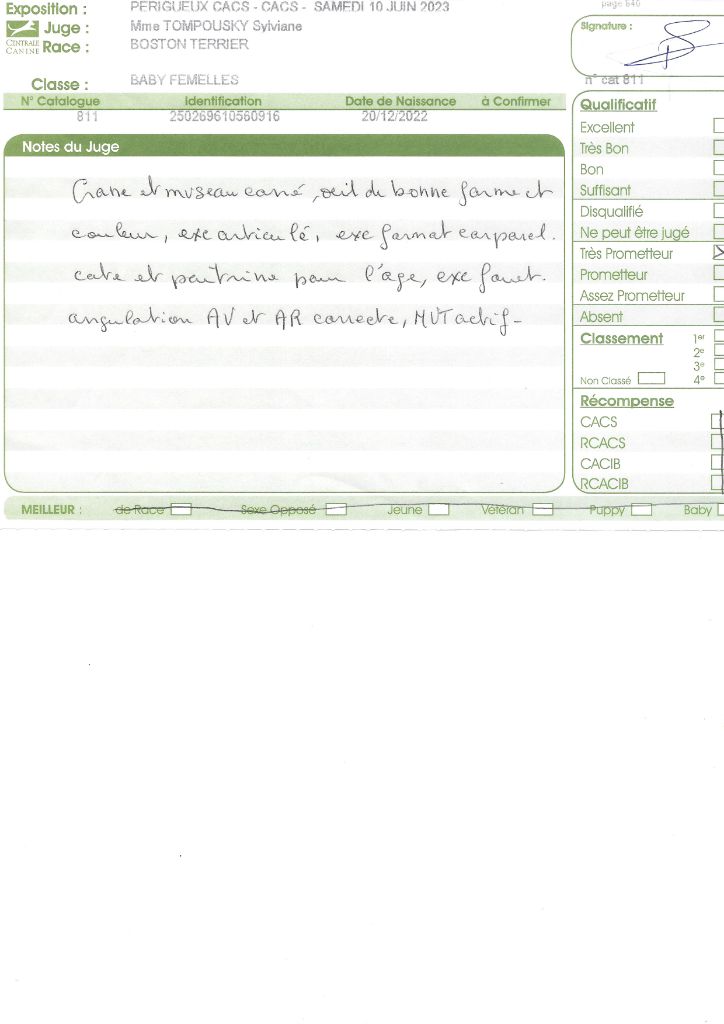 page 840
Exposition : PERIGUEUX CACS - CACS - SAMEDI 10 JUIN 2023
Juge : Mme TOMPOUSKY Sylviane
CENTRALE CANINE
Race : BOSTON TERRIER
Signature :
Classe : BABY FEMELLES
n° cat 811
N° Catalogue Identification Date de Naissance à Confirmer
811 250269610560916 20/12/2022
Notes du Juge
Crane et museau carré, oeil de bonne forme et
couleur, exc articulé, exc format corporel.
cote et poitrine pour l'age, exc fouet.
angulation AV et AR correcte, MVT actif -
Qualificatif
Excellent
Très Bon
Bon
Suffisant
Disqualifié
Ne peut être jugé
Très Prometteur
Prometteur
Assez Prometteur
Absent
Classement 1er
2e
3e
Non Classé 4e
Récompense
CACS
RCACS
CACIB
RCACIB
MEILLEUR : de Race Sexe Opposé Jeune Vétéran Puppy Baby